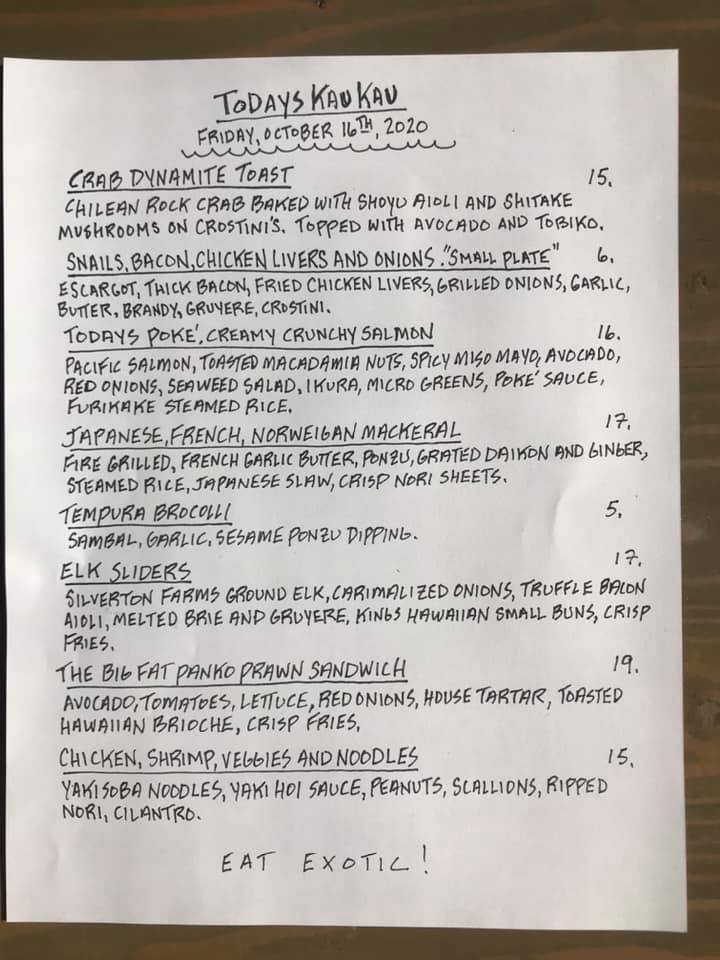 TODAYS KAU KAU
FRIDAY, OCTOBER 16TH, 2020
CRAB DYNAMITE TOAST 15.
CHILEAN ROCK CRAB BAKED WITH SHOYU AIOLI AND SHITAKE
MUSHROOMS ON CROSTINI'S. TOPPED WITH AVOCADO AND TOBIKO.
SNAILS, BACON, CHICKEN LIVERS AND ONIONS. "SMALL PLATE" 6.
ESCARGOT, THICK BACON, FRIED CHICKEN LIVERS, GRILLED ONIONS, GARLIC,
BUTTER, BRANDY, GRUYERE, CROSTINI.
TODAYS POKE', CREAMY CRUNCHY SALMON 16.
PACIFIC SALMON, TOASTED MACADAMIA NUTS, SPICY MISO MAYO, AVOCADO,
RED ONIONS, SEAWEED SALAD, IKURA, MICRO GREENS, POKE' SAUCE,
FURIKAKE STEAMED RICE.
JAPANESE, FRENCH, NORWEIGAN MACKERAL 17.
FIRE GRILLED, FRENCH GARLIC BUTTER, PONZU, GRATED DAIKON AND GINGER,
STEAMED RICE, JAPANESE SLAW, CRISP NORI SHEETS.
TEMPURA BROCOLLI 5.
SAMBAL, GARLIC, SESAME PONZU DIPPING.
ELK SLIDERS 17.
SILVERTON FARMS GROUND ELK, CARIMALIZED ONIONS, TRUFFLE BACON
AIOLI, MELTED BRIE AND GRUYERE, KINGS HAWAIIAN SMALL BUNS, CRISP
FRIES.
THE BIG FAT PANKO PRAWN SANDWICH 19.
AVOCADO, TOMATOES, LETTUCE, RED ONIONS, HOUSE TARTAR, TOASTED
HAWAIIAN BRIOCHE, CRISP FRIES.
CHICKEN, SHRIMP, VEGGIES AND NOODLES 15.
YAKISOBA NOODLES, YAKI HOI SAUCE, PEANUTS, SCALLIONS, RIPPED
NORI, CILANTRO.
EAT EXOTIC!